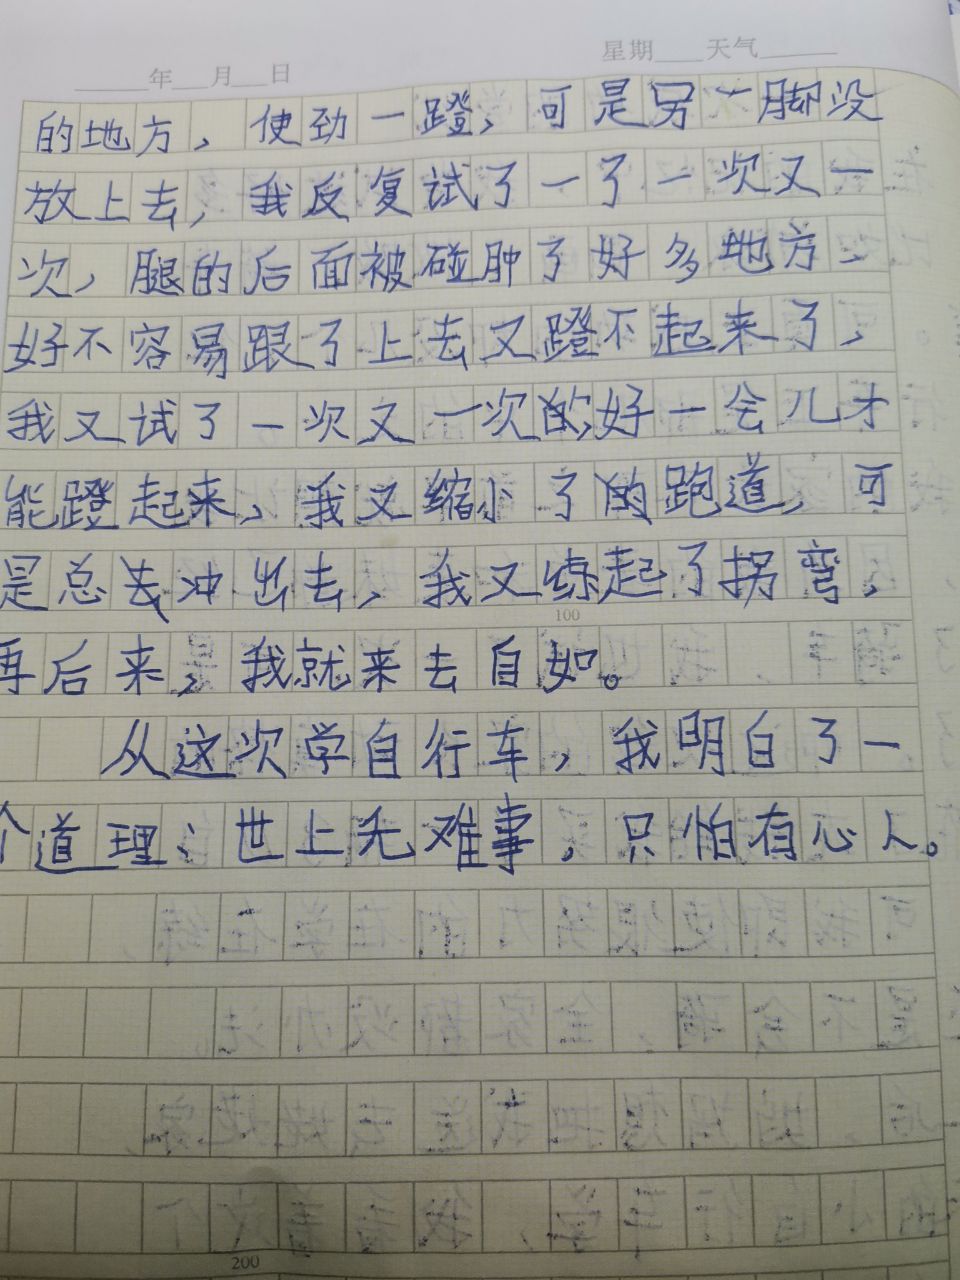 年 月 日 星期 天气
的地方，使劲一蹬，可是另一脚没
放上去，我反复试了一了一次又一
次，腿的后面被碰肿了好多地方，
好不容易跟了上去又蹬不起来了，
我又试了一次又一次的，好一会儿才
能蹬起来，我又缩小了的跑道，可
是总去冲出去，我又练起了拐弯，
100
再后来，我就来去自如。
从这次学自行车，我明白了一
个道理：世上无难事，只怕有心人。
200